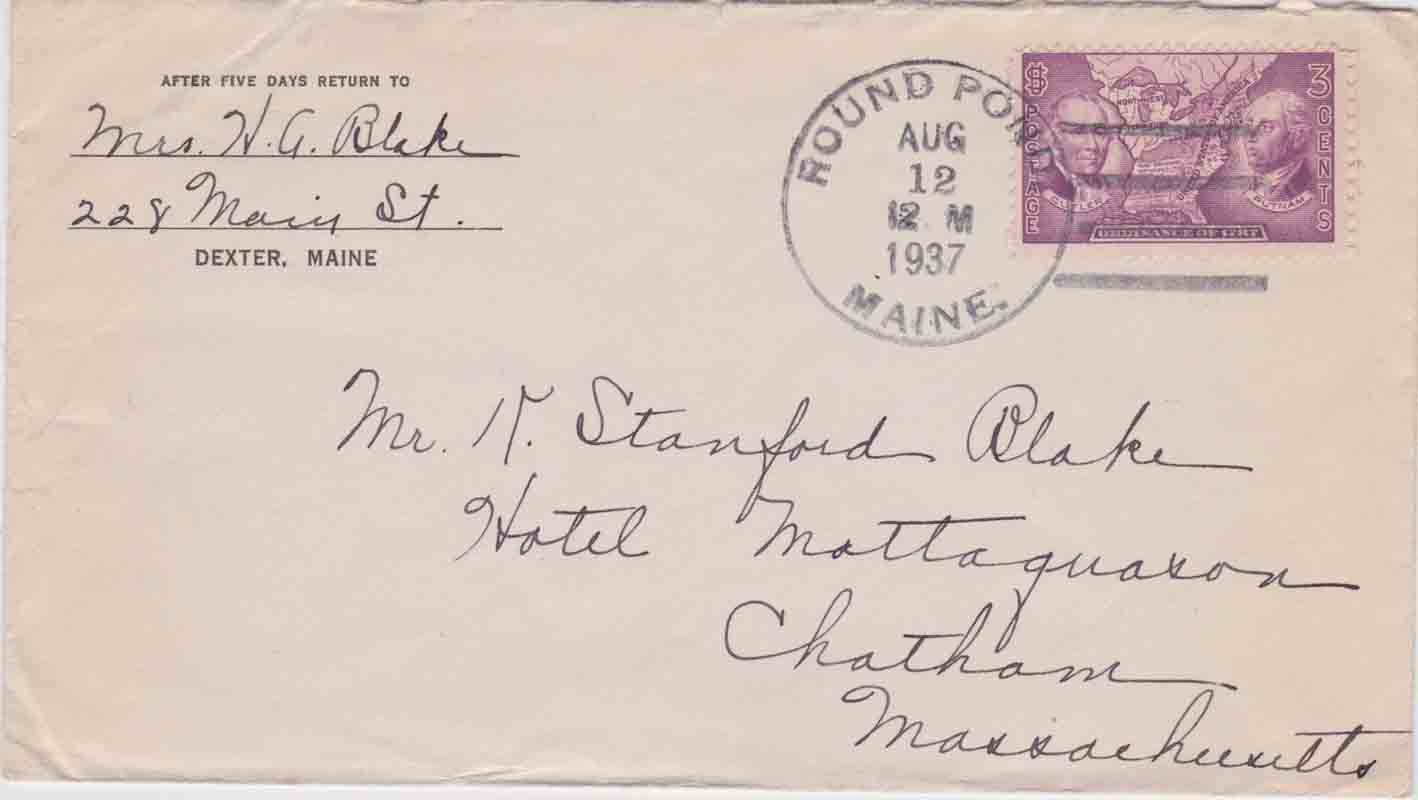 AFTER FIVE DAYS RETURN TO
Mrs. H. A. Blake
228 Main St.
DEXTER, MAINE
ROUND POND
AUG
12
12 M
1937
MAINE.
POSTAGE
3 CENTS
CUTLER
PUTNAM
ORDINANCE OF 1787
Mr. K. Stanford Blake
Hotel Mattaquason
Chatham
Massachusetts